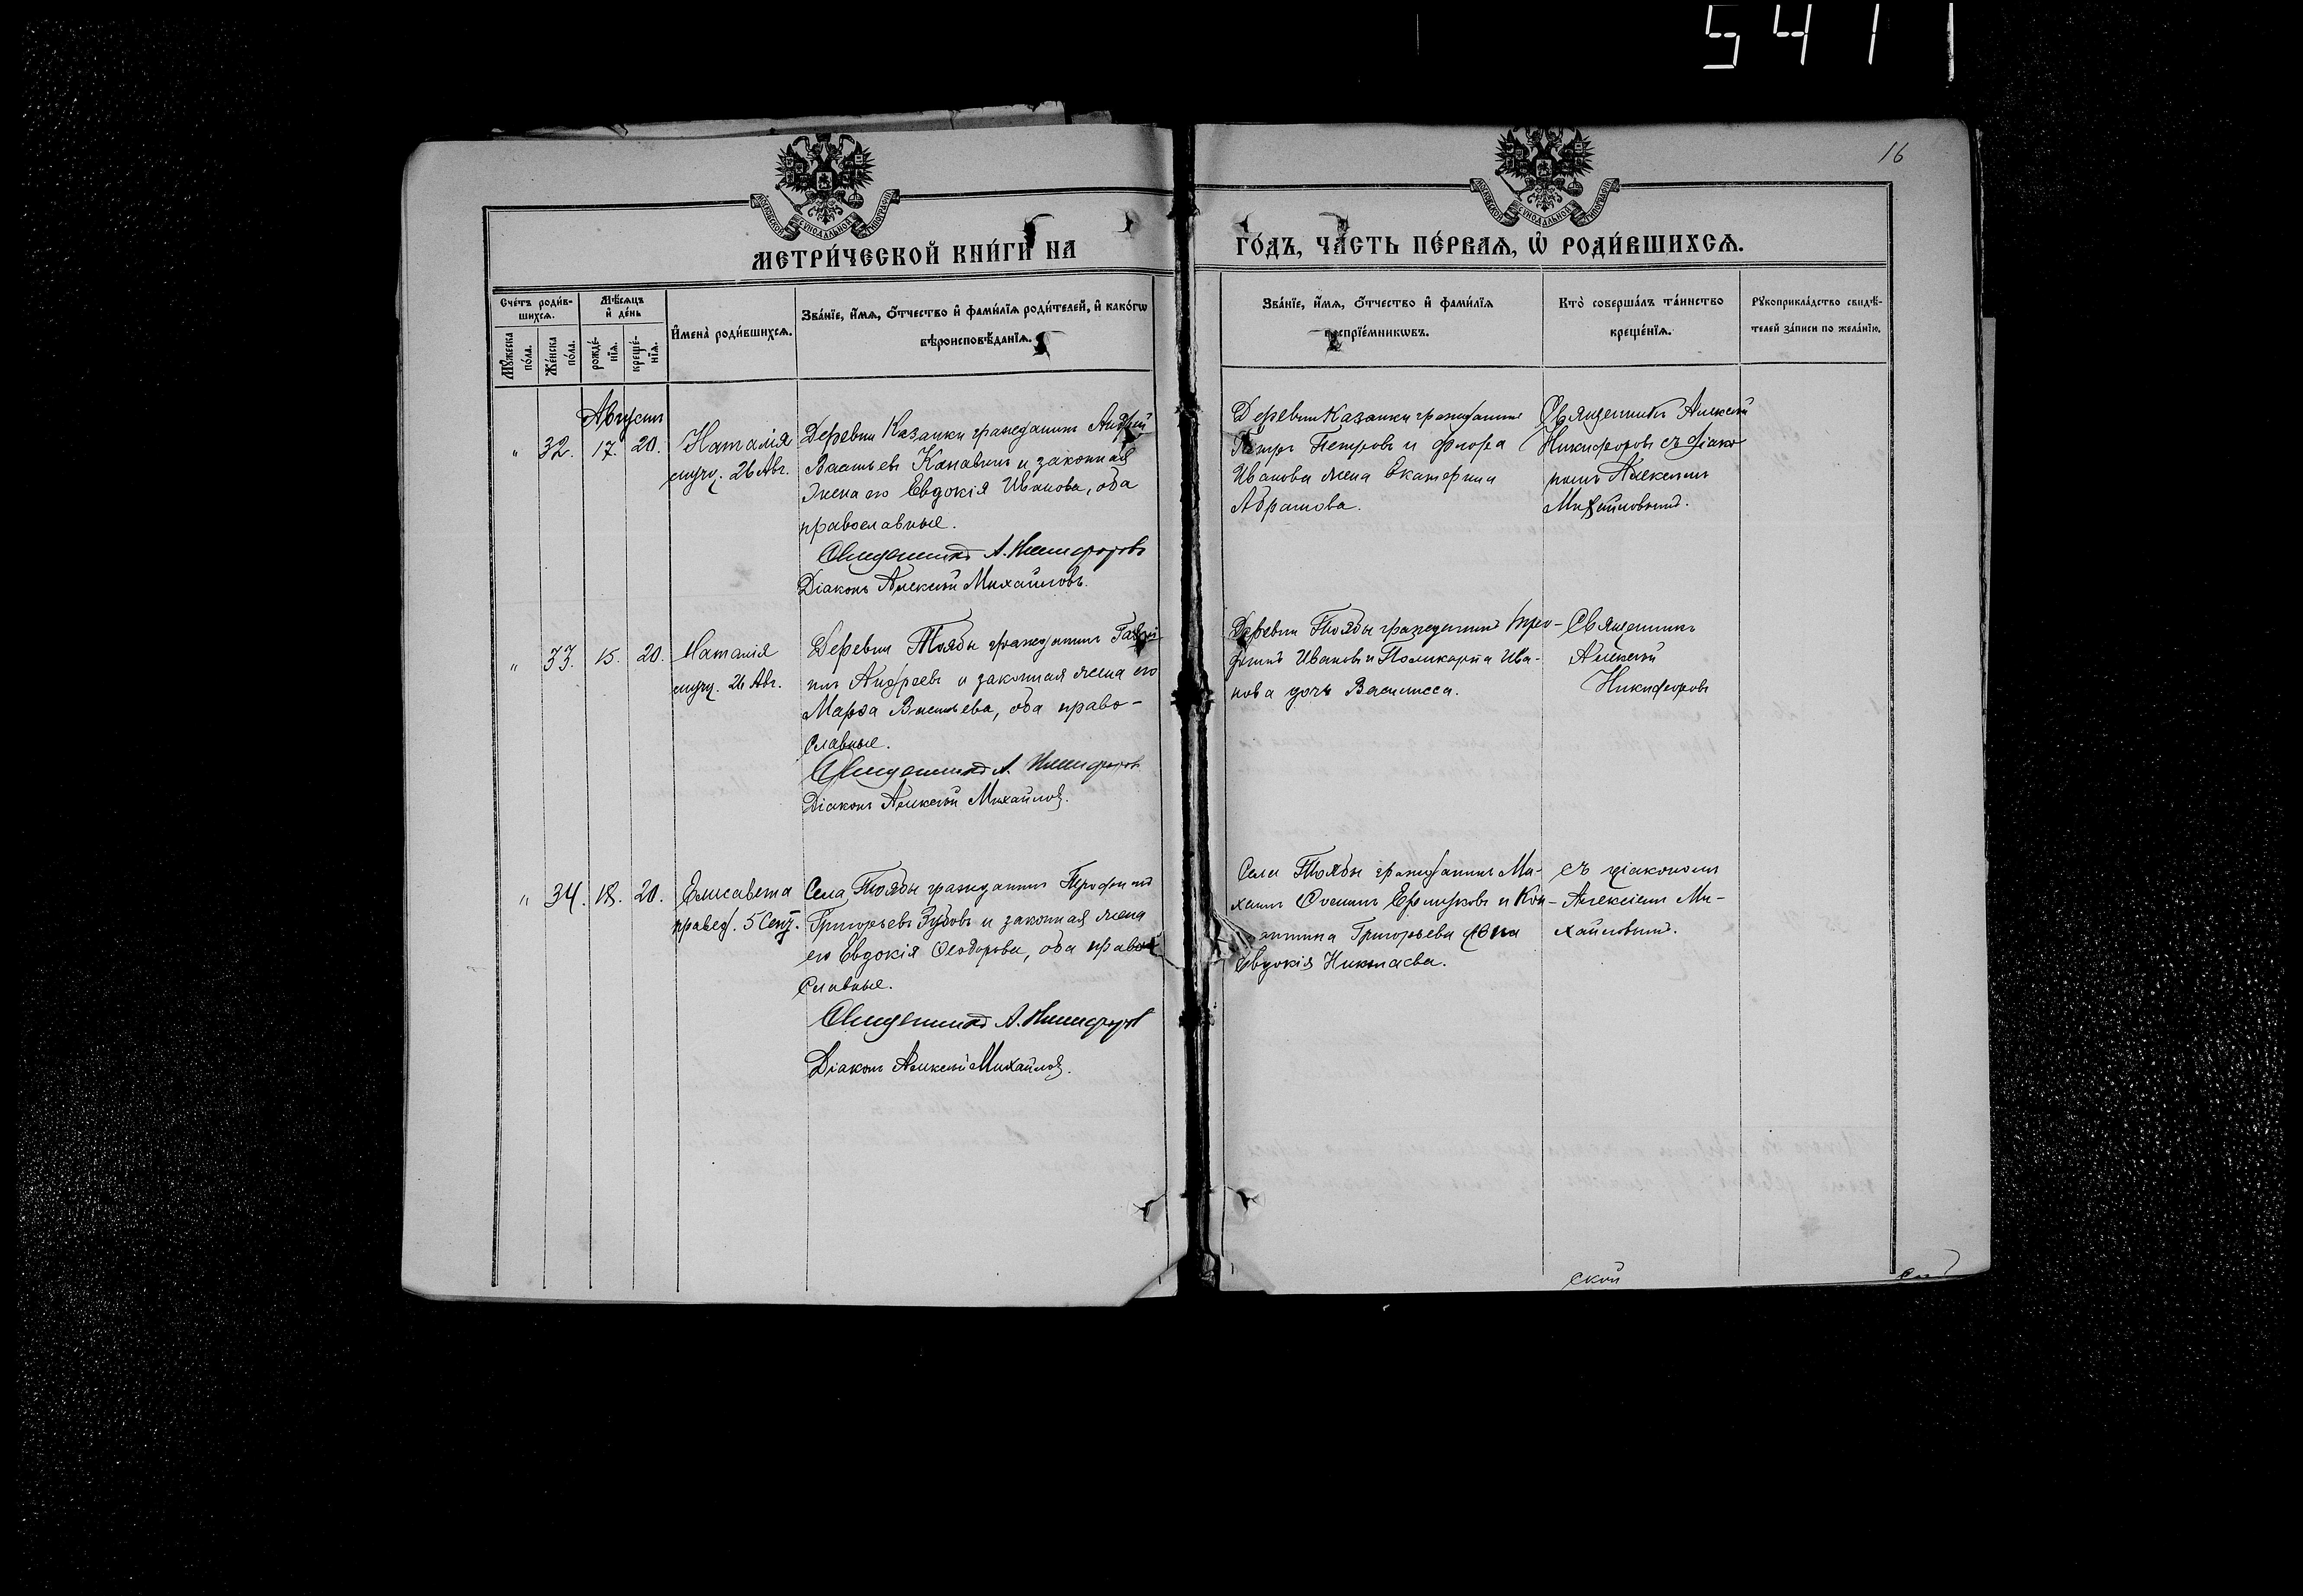 5411
16
МЕТРИ́ЧЕСКОЙ КНИ́ГИ НА ГО́ДЪ, ЧА́СТЬ ПЕ́РВАѦ, Ѡ҆ РОДИ́ВШИХСѦ.
Сче́тъ роди́в-
шихсѧ.
Мѣ́сѧцъ
и҆ де́нь
Мꙋ́жеска
по́ла.
Же́нска
по́ла.
рожде́-
нїѧ.
креще́-
нїѧ.
И҆мена̀ роди́вшихсѧ.
Зва́нїе, и҆́мѧ, ѻ҆́тчество и҆ фами́лїѧ роди́телей, и҆ како́гѡ
вѣроисповѣ́данїѧ.
Зва́нїе, и҆́мѧ, ѻ҆́тчество и҆ фами́лїѧ
воспрїе́мникѡвъ.
Кто̀ соверша́лъ та́инство
креще́нїѧ.
Рꙋкоприкла́дство свидѣ́-
телей за́писи по жела́нїю.
Августъ
" 32. 17. 20. Наталія
муч. 26 Авг.
Деревни Казанки гражданинъ Андрей
Васильевъ Канавинъ и законная
жена его Евдокія Иванова, оба
православные.
Священникъ А. Никифоровъ
Діаконъ Алексѣй Михайловъ.
Деревни Казанки гражданинъ
Петръ Петровъ и Флора
Иванова жена Екатерина
Абрамова.
Священникъ Алексѣй
Никифоровъ съ діако
номъ Алексѣемъ
Михайловымъ.
" 33. 15. 20. Наталія
муч. 26 Авг.
Деревни Тоябы гражданинъ Гаврі
илъ Андреевъ и законная жена его
Марѳа Васильева, оба право-
славные.
Священникъ А. Никифоровъ
Діаконъ Алексѣй Михайловъ.
Деревни Тоябы гражданинъ Тро-
фимъ Ивановъ и Поликарпа Ива-
нова дочь Василисса.
Священникъ
Алексѣй
Никифоровъ
" 34. 18. 20. Елисавета
правед. 5 Сент.
Села Тоябы гражданинъ Трофимъ
Григорьевъ Зубовъ и законная жена
его Евдокія Ѳеодорова, оба право
славные.
Священникъ А. Никифоровъ
Діаконъ Алексѣй Михайловъ.
Села Тоябы гражданинъ Ми-
хаилъ Осиповъ и Кон-
Григорьева
Евдокія Николаева.
съ діакономъ
Алексіемъ Ми-
хайловымъ.
ской